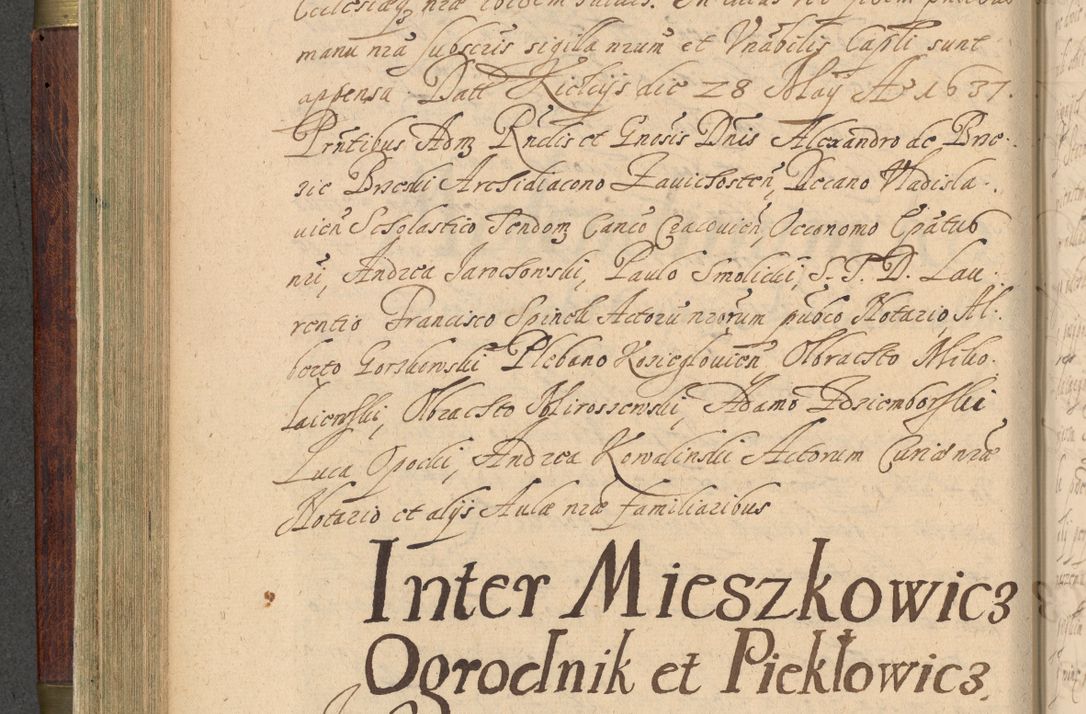 manu nra subscris sigilla nrum et Vnabilis Capli sunt
appensa Datt Kielcijs die 28 Maij Ao 1637.
Prntibus Adm Rndis et Gnosis Dnis Alexandro de Brze-
zie Brzeski Archidiacono Zavichosten, Decano Vladisla-
uien Scholastico Sendom Canco Cracouien, Oeconomo Epatus
nri, Andrea Jarochowski, Paulo Smolicki, S. T. D. Lau-
rentio Francisco Spinek Actoru nrorum publco Notario, Al-
berto Gorskowski Plebano Kozieglouien Olbrachto Miko-
laiewski, Olbrachto Miroszewski, Adamo Dziemborski
Luca Opocki, Andrea Kowalinski Actorum Curiae nrae
Notario et alijs Aulae nrae Familiaribus
Inter Mieszkowicz
Ogrodnik et Piekłowicz